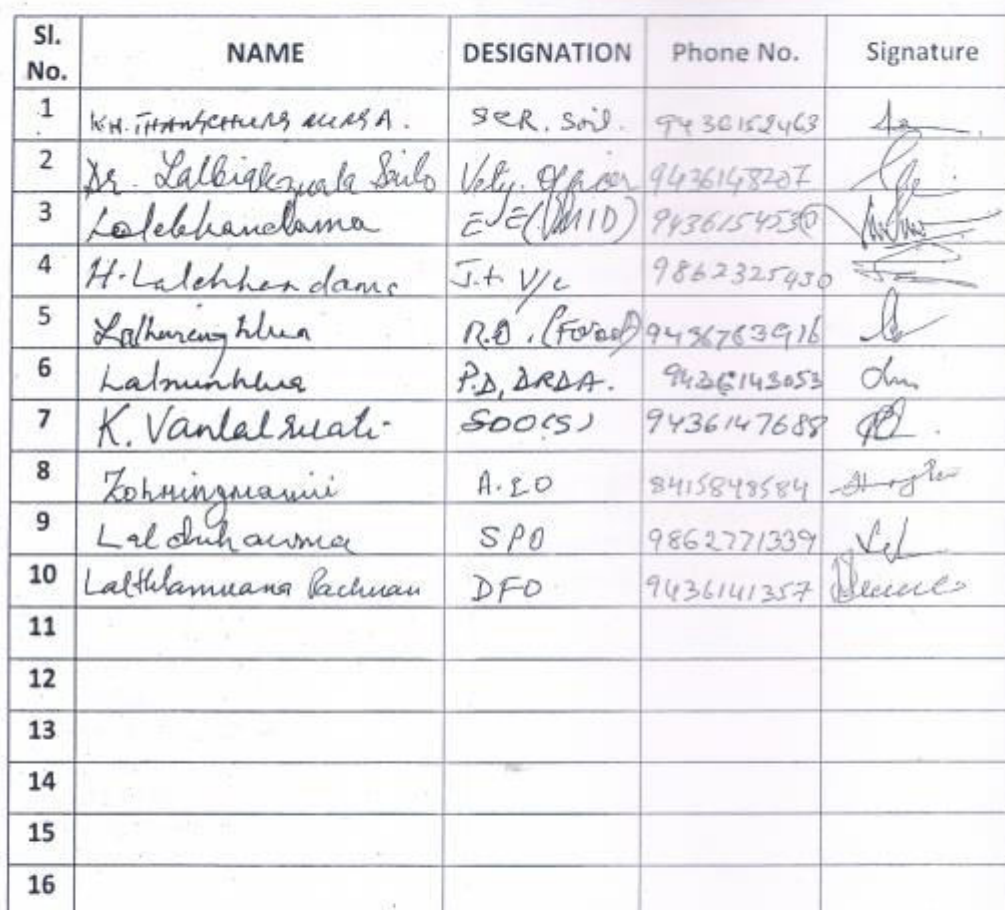 Sl. No. NAME DESIGNATION Phone No. Signature
1 KH. SCR. Soil. 9436152463
2 Dr. Lalbiakzuala Sailo Vety. Officer 9436148207
3 Lalchhandama 9436154530
4 H. Lalchhandama J.t. V/c 9862325430
5 R.O. (Forest) 9436763916
6 Lalnunhlua P.D, DRDA. 9436143053
7 K. Vanlalruati SDO(S) 9436147688
8 Zohmingmawii A.EO 8415848584
9 Lalduhawma SPO 9862771339
10 Lalthlamuana Pachuau DFO 9436141357
11
12
13
14
15
16